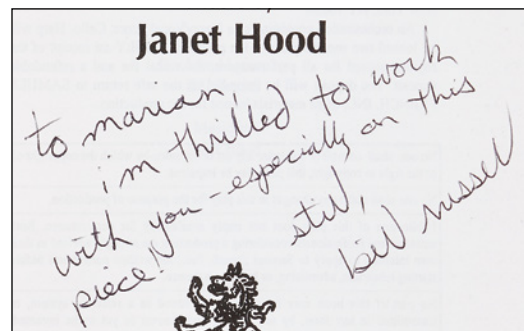 Janet Hood
to marian,
i'm thrilled to work
with you - especially on this
piece!!
still,
bill russell